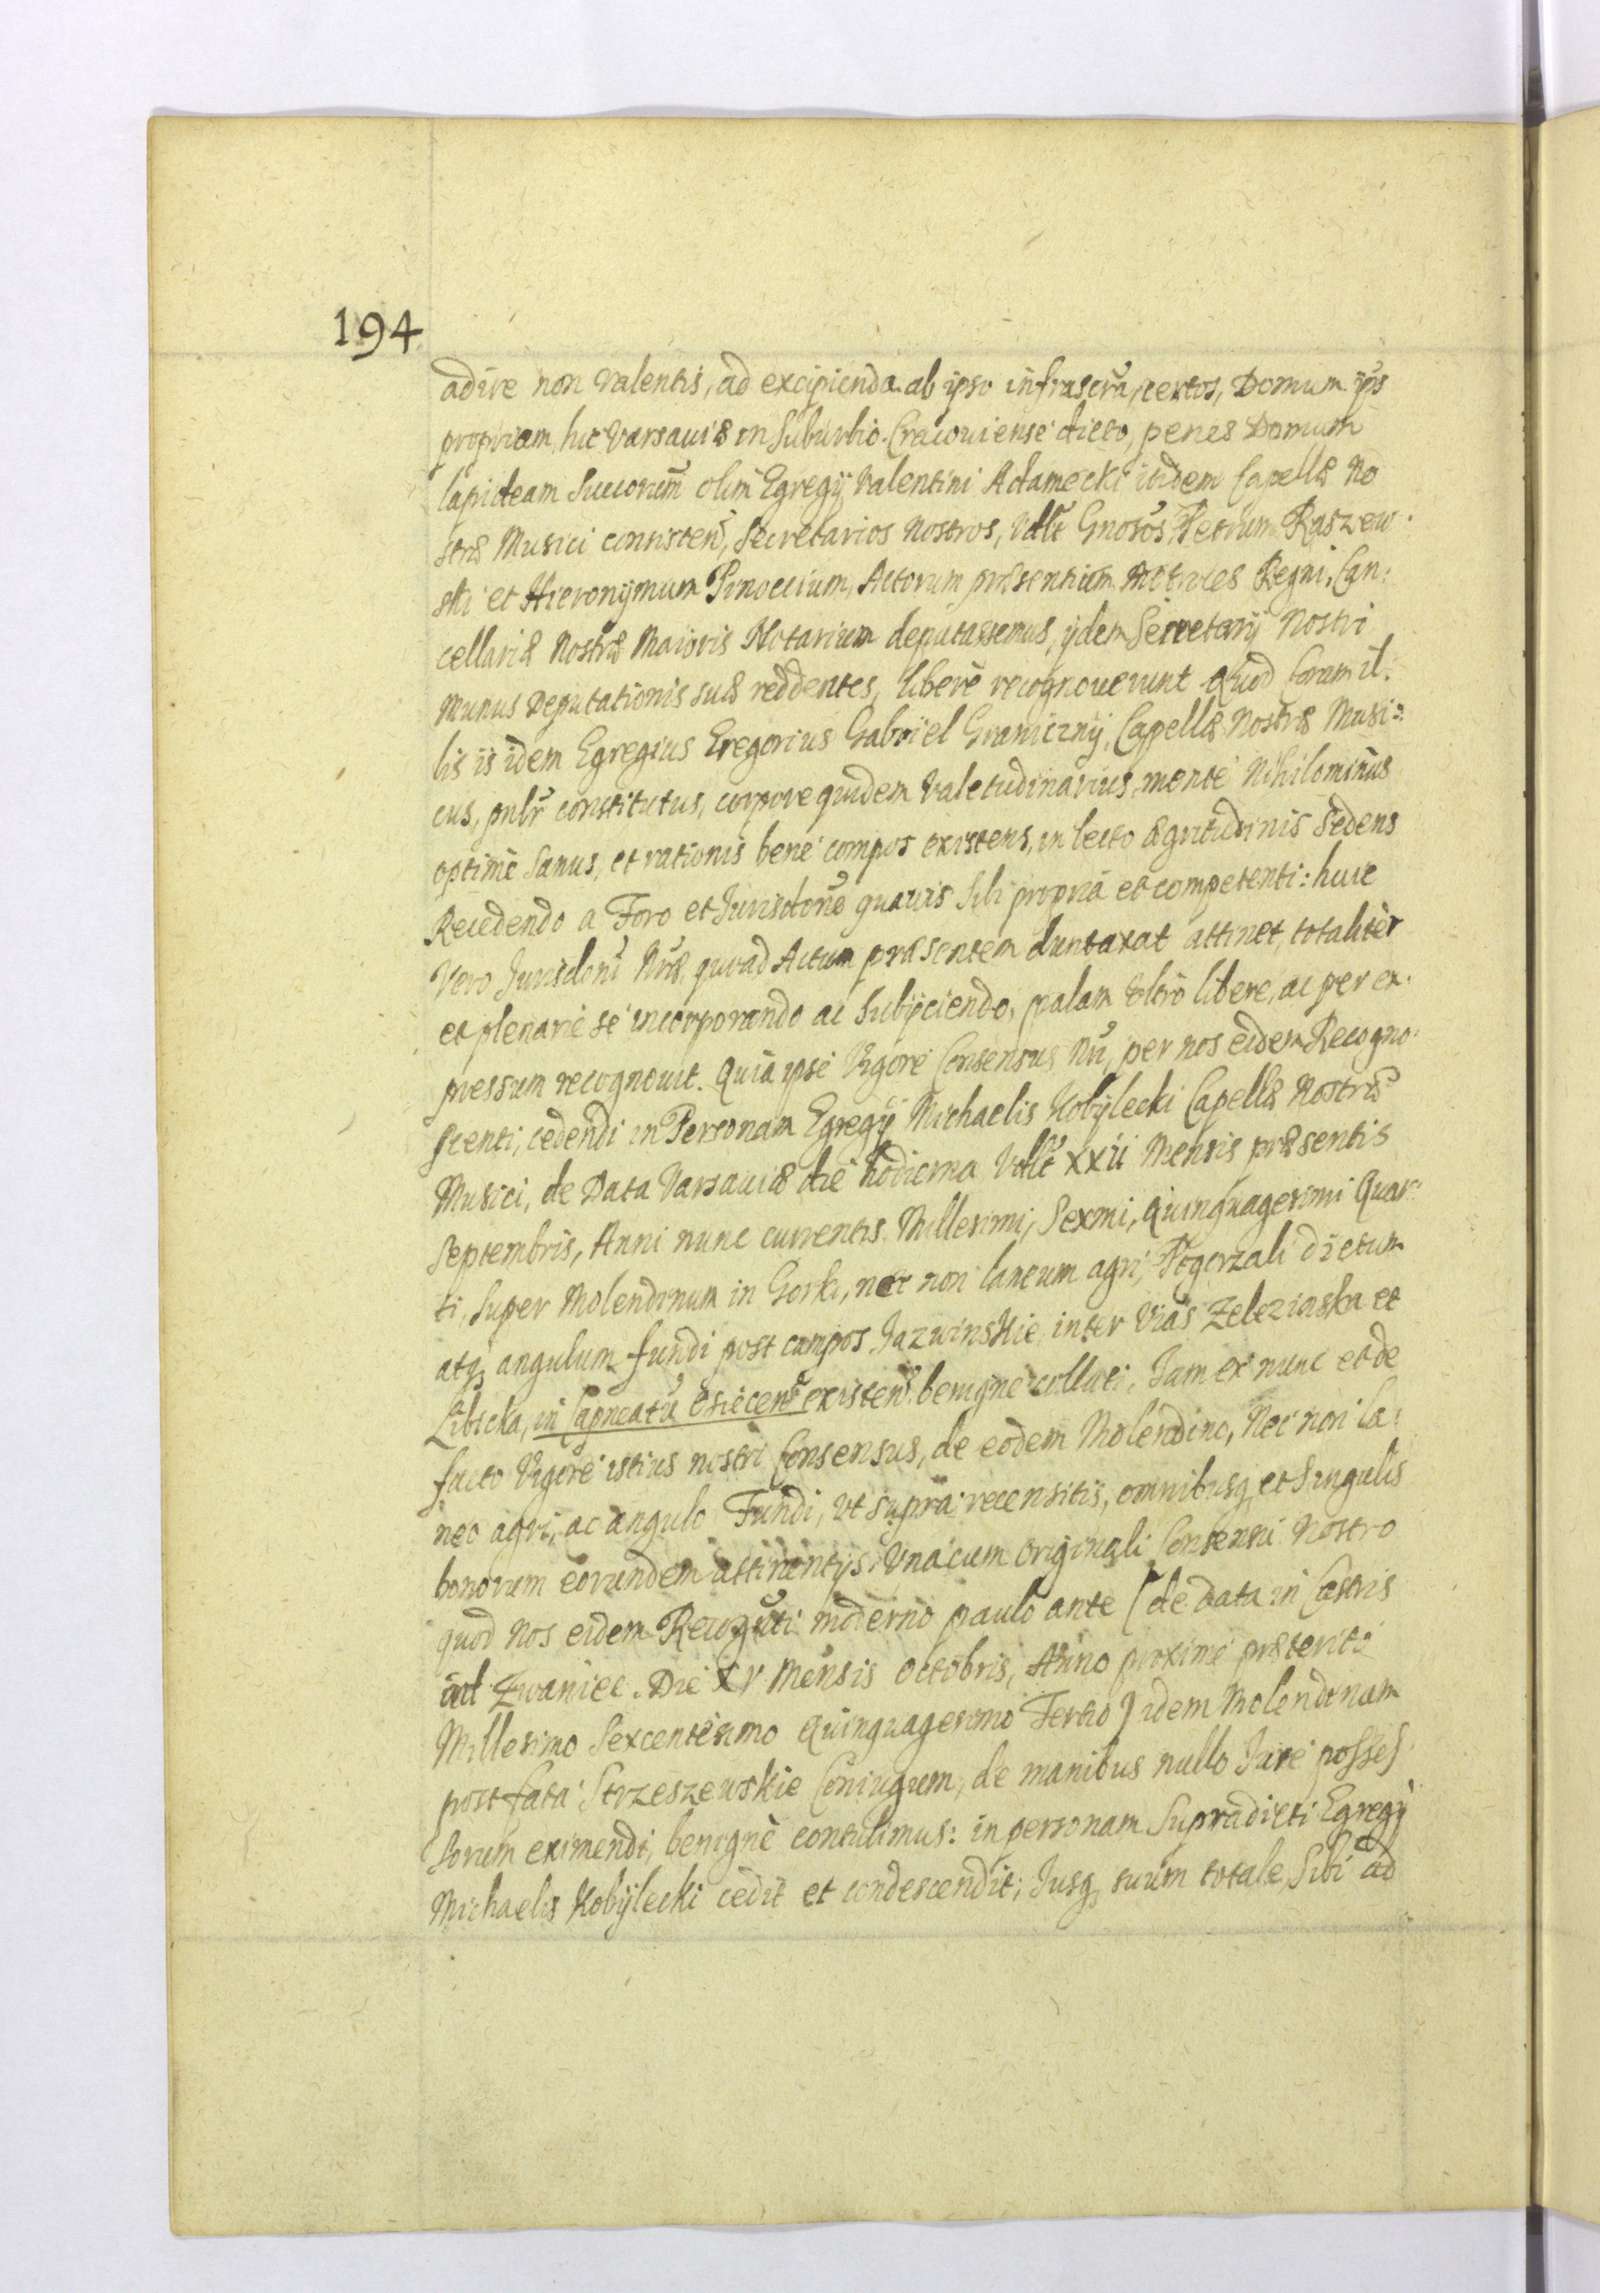 194
adire non valentis, ad excipienda ab ipso infrascra, certos, Domum ips
propriam, hic Varsaviæ in Suburbio Cracoviensé dicto, penes Domum
lapideam Succorum olim Egregij Valentini Adamecki itidem Capellæ No
stræ Musici consisten, Secretarios Nostros, vdlt Gnosos, Petrum Raszew
ski et Hieronymum Pinoccium, Actorum præsentium Metrices Regni, Can:
cellariæ Nostræ Maioris Notarium deputassemus, ijdem Secretarij Nostri
munus Deputationis suæ reddentes, liberè recognoverunt Quod Coram il:
lis is idem Egregius Gregorius Gabriel Granicznij, Capellæ Nostræ Musi:
cus, pnlr constitutus, corpore quidem valetudinarius, mente Nihilominus
optimè Sanus, et rationis bene compos existens, in lecto ægritudinis Sedens
Recedendo a Foro et Jurisdone quavis Sibi propria et competenti: huic
Vero Jurisdoni Nræ, quoad Actum præsentem duntaxat attinet, totalitèr
et plenarie se incorporando ac Subijciendo, palam Vltrò libere, ac per ex.
pressum recognovit. Quia ipse Vigore Consensus Nri, per nos eidem Recogno.
scenti, cedendi in Personam Egregij Michaelis Kobylecki Capellæ Nostræ
Musici, de Data Varsaviæ die hodierna Vdlt XXII Mensis præsentis
Septembris, Anni nunc currentis Millesimi, Sexmi, Quinquagesimi Quar:
ti, Super Molendinum in Gorki, nec non laneum agri, Pogorzali dictum
atq angulum fundi post campos Jazwinskie inter Vias Zelezinska et
Libicka, in Capneatu Osiecen existen benigne collati, Jam ex nunc et de
facto Vigore istius nostri Consensus, de eodem Molendino, Nec non la:
neo agri, ac angulo Fundi, vt supra recensitis, omnibusq et Singulis
bonorum eorundem attinentijs, Vnacum originali Consensu Nostro
quod Nos eidem Recognti moderno paulo ante [de Data in Castris
ad Zwaniec. Die XV Mensis Octobris, Anno proxime præterito
Millesimo Sexcentesimo Quinquagesimo Tertio] idem Molendinum
post fata Strzeszewskie Coniugum, de manibus nullo Jure posses
sorum eximendi, benignè contulimus: in personam Supradicti Egregij
Michaelis Kobylecki cedit et condescendit; Jusq suum totale, Sibi ad